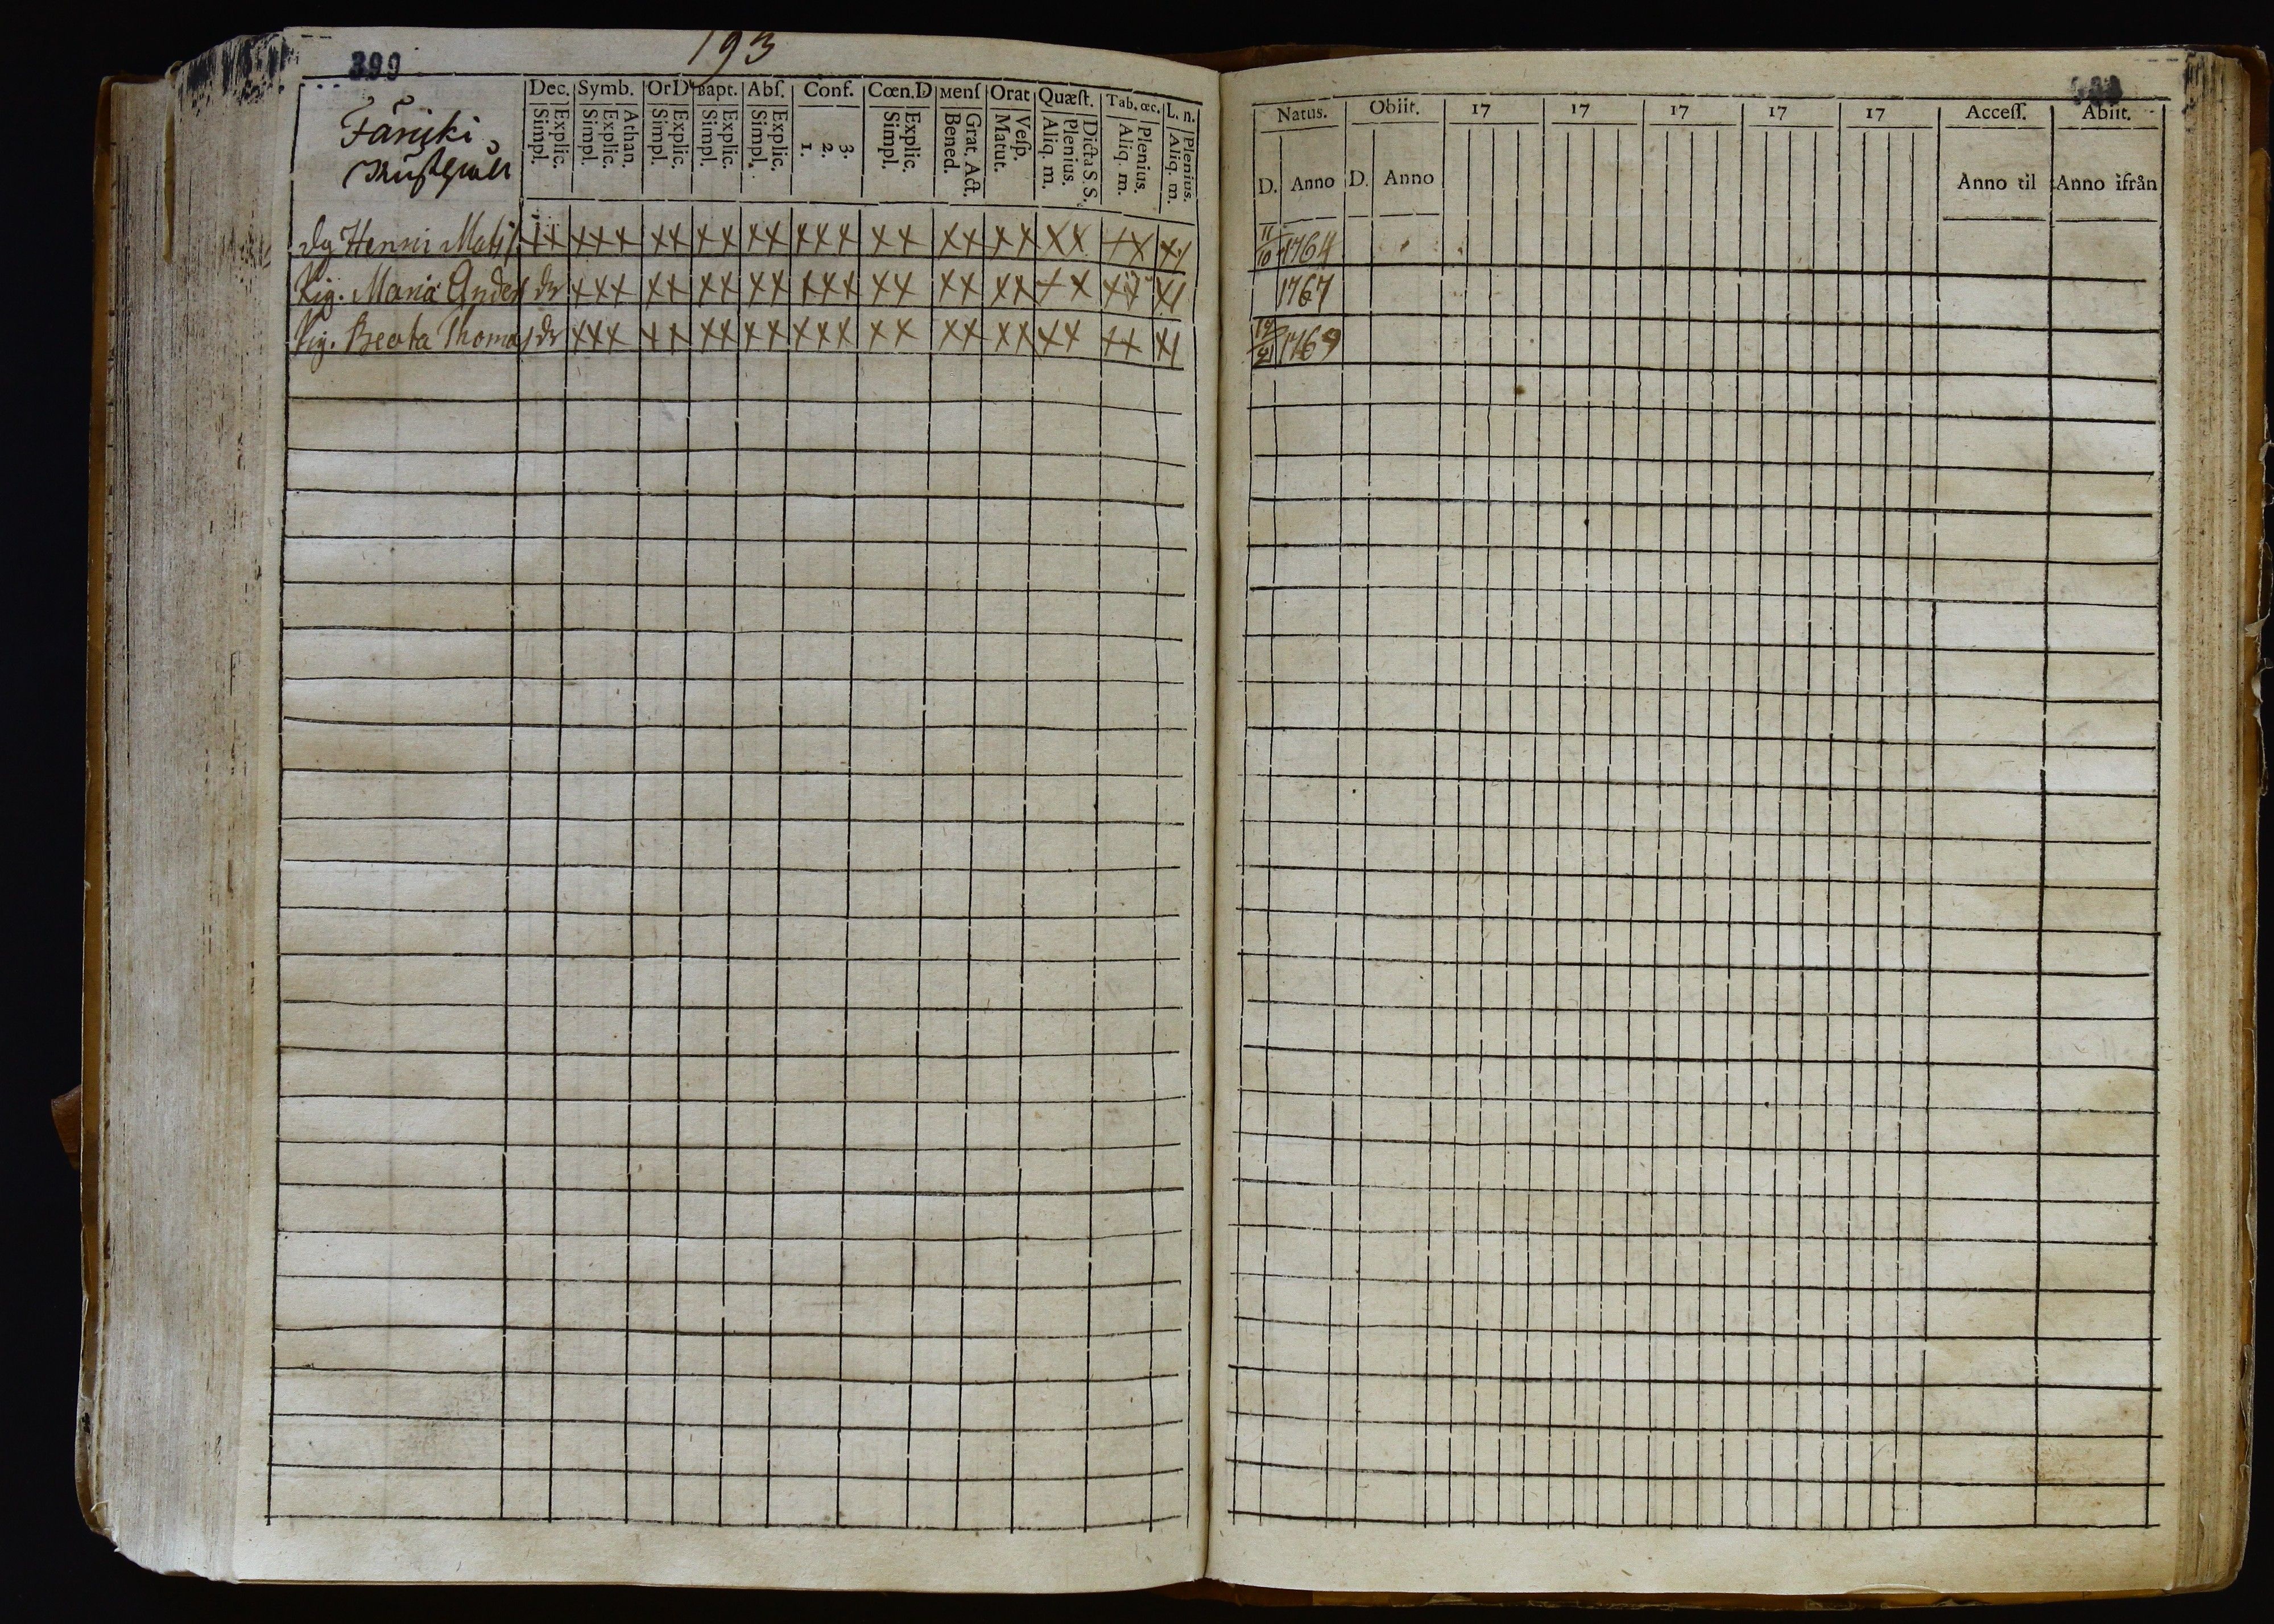 399
193
Dec. Symb. OrD Bapt. Abſ. Conf. Cœn.D Menſ Orat Quæſt. Tab. œc. L. n.
Explic. Simpl. Athan. Explic. Simpl. Explic. Simpl. Explic. Simpl. Explic. Simpl. 3. 2. 1. Explic. Simpl. Grat. Act. Bened. Veſp. Matut. Dicta S.S. Plenius. Aliq. m. Plenius. Aliq. m. Plenius. Aliq. m.
Dg Henric Mats
Pig. Maria Anders dr
Pig. Beata Thomas dr
Natus. Obiit. 17 17 17 17 17 Acceſſ. Abiit.
D. Anno D. Anno Anno til Anno ifrån
11/10 1764
1767
1769